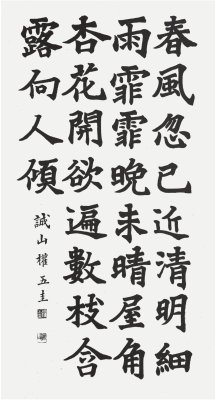 春風忽已近清明細
雨霏霏晚未晴屋角
杏花開欲遍數枝含
露向人傾
誠山權五圭